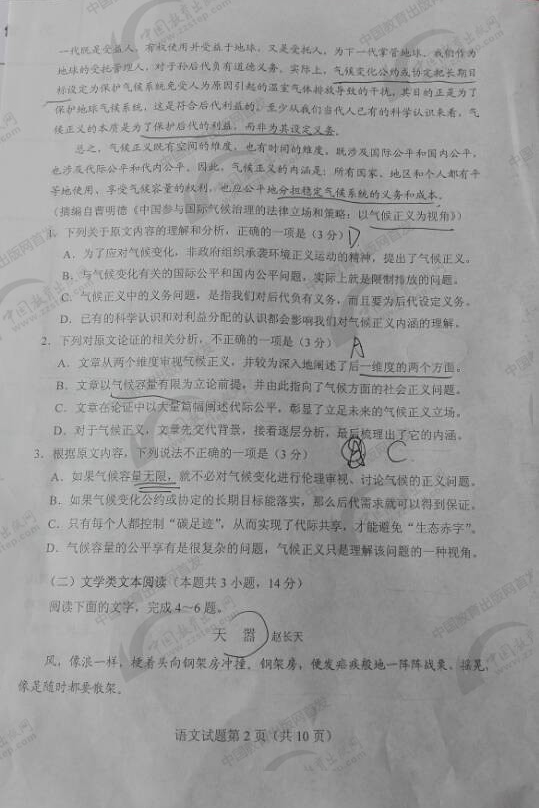 一代既是受益人，有权使用并受益于地球，又是受托人，为下一代掌管地球。我们作为
地球的受托管理人，对子孙后代负有道德义务。实际上，气候变化公约或协定把长期目
标设定为保护气候系统免受人为原因引起的温室气体排放导致的干扰，其目的正是为了
保护地球气候系统，这是符合后代利益的。至少从我们当代人已有的科学认识来看，气
候正义的本质是为了保护后代的利益，而非为其设定义务。
总之，气候正义既有空间的维度，也有时间的维度，既涉及国际公平和国内公平，
也涉及代际公平和代内公平。因此，气候正义的内涵是：所有国家、地区和个人都有平
等地使用、享受气候容量的权利，也应公平地分担稳定气候系统的义务和成本。
（摘编自曹明德《中国参与国际气候治理的法律立场和策略：以气候正义为视角》）
1. 下列关于原文内容的理解和分析，正确的一项是（3分） D
A．为了应对气候变化，非政府组织承袭环境正义运动的精神，提出了气候正义。
B．与气候变化有关的国际公平和国内公平问题，实际上就是限制排放的问题。
C．气候正义中的义务问题，是指我们对后代负有义务，而且要为后代设定义务。
D．已有的科学认识和对利益分配的认识都会影响我们对气候正义内涵的理解。
2. 下列对原文论证的相关分析，不正确的一项是（3分） A
A．文章从两个维度审视气候正义，并较为深入地阐述了后一维度的两个方面。
B．文章以气候容量有限为立论前提，并由此指向了气候方面的社会正义问题。
C．文章在论证中以大量篇幅阐述代际公平，彰显了立足未来的气候正义立场。
D．对于气候正义，文章先交代背景，接着逐层分析，最后梳理出了它的内涵。
3. 根据原文内容，下列说法不正确的一项是（3分） C
A．如果气候容量无限，就不必对气候变化进行伦理审视、讨论气候的正义问题。
B．如果气候变化公约或协定的长期目标能落实，那么后代需求就可以得到保证。
C．只有每个人都控制“碳足迹”，从而实现了代际共享，才能避免“生态赤字”。
D．气候容量的公平享有是很复杂的问题，气候正义只是理解该问题的一种视角。
（二）文学类文本阅读（本题共3小题，14分）
阅读下面的文字，完成4～6题。
天 嚣 赵长天
风，像浪一样，梗着头向钢架房冲撞。钢架房，便发疟疾般地一阵阵战栗、摇晃，
像是随时都要散架。
语文试题第 2 页（共 10 页）